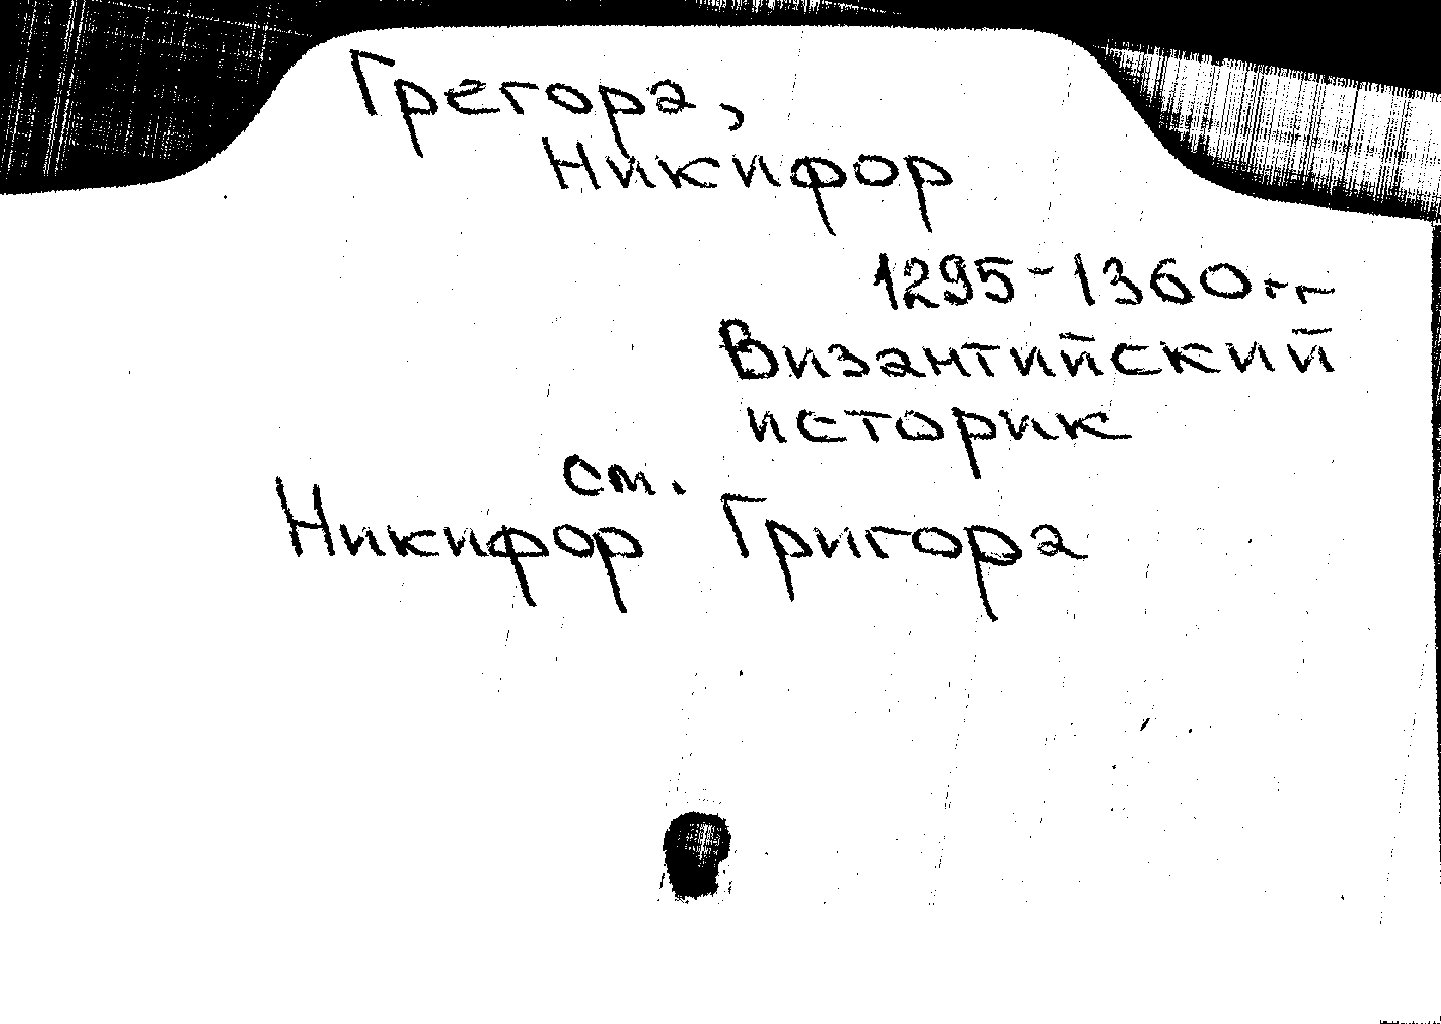 Грегора,
Никифор
1295-1360гг
Византийский
историк
см.
Никифор Григора